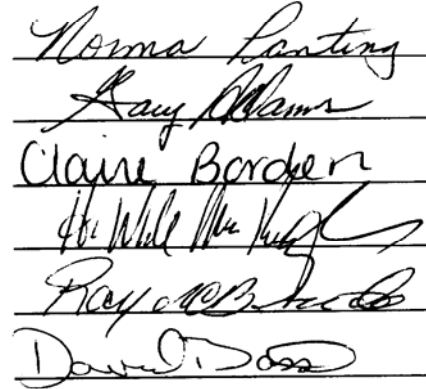 Norma Panting
Gary Adams
Claire Borden
Ray McBride
David Doss